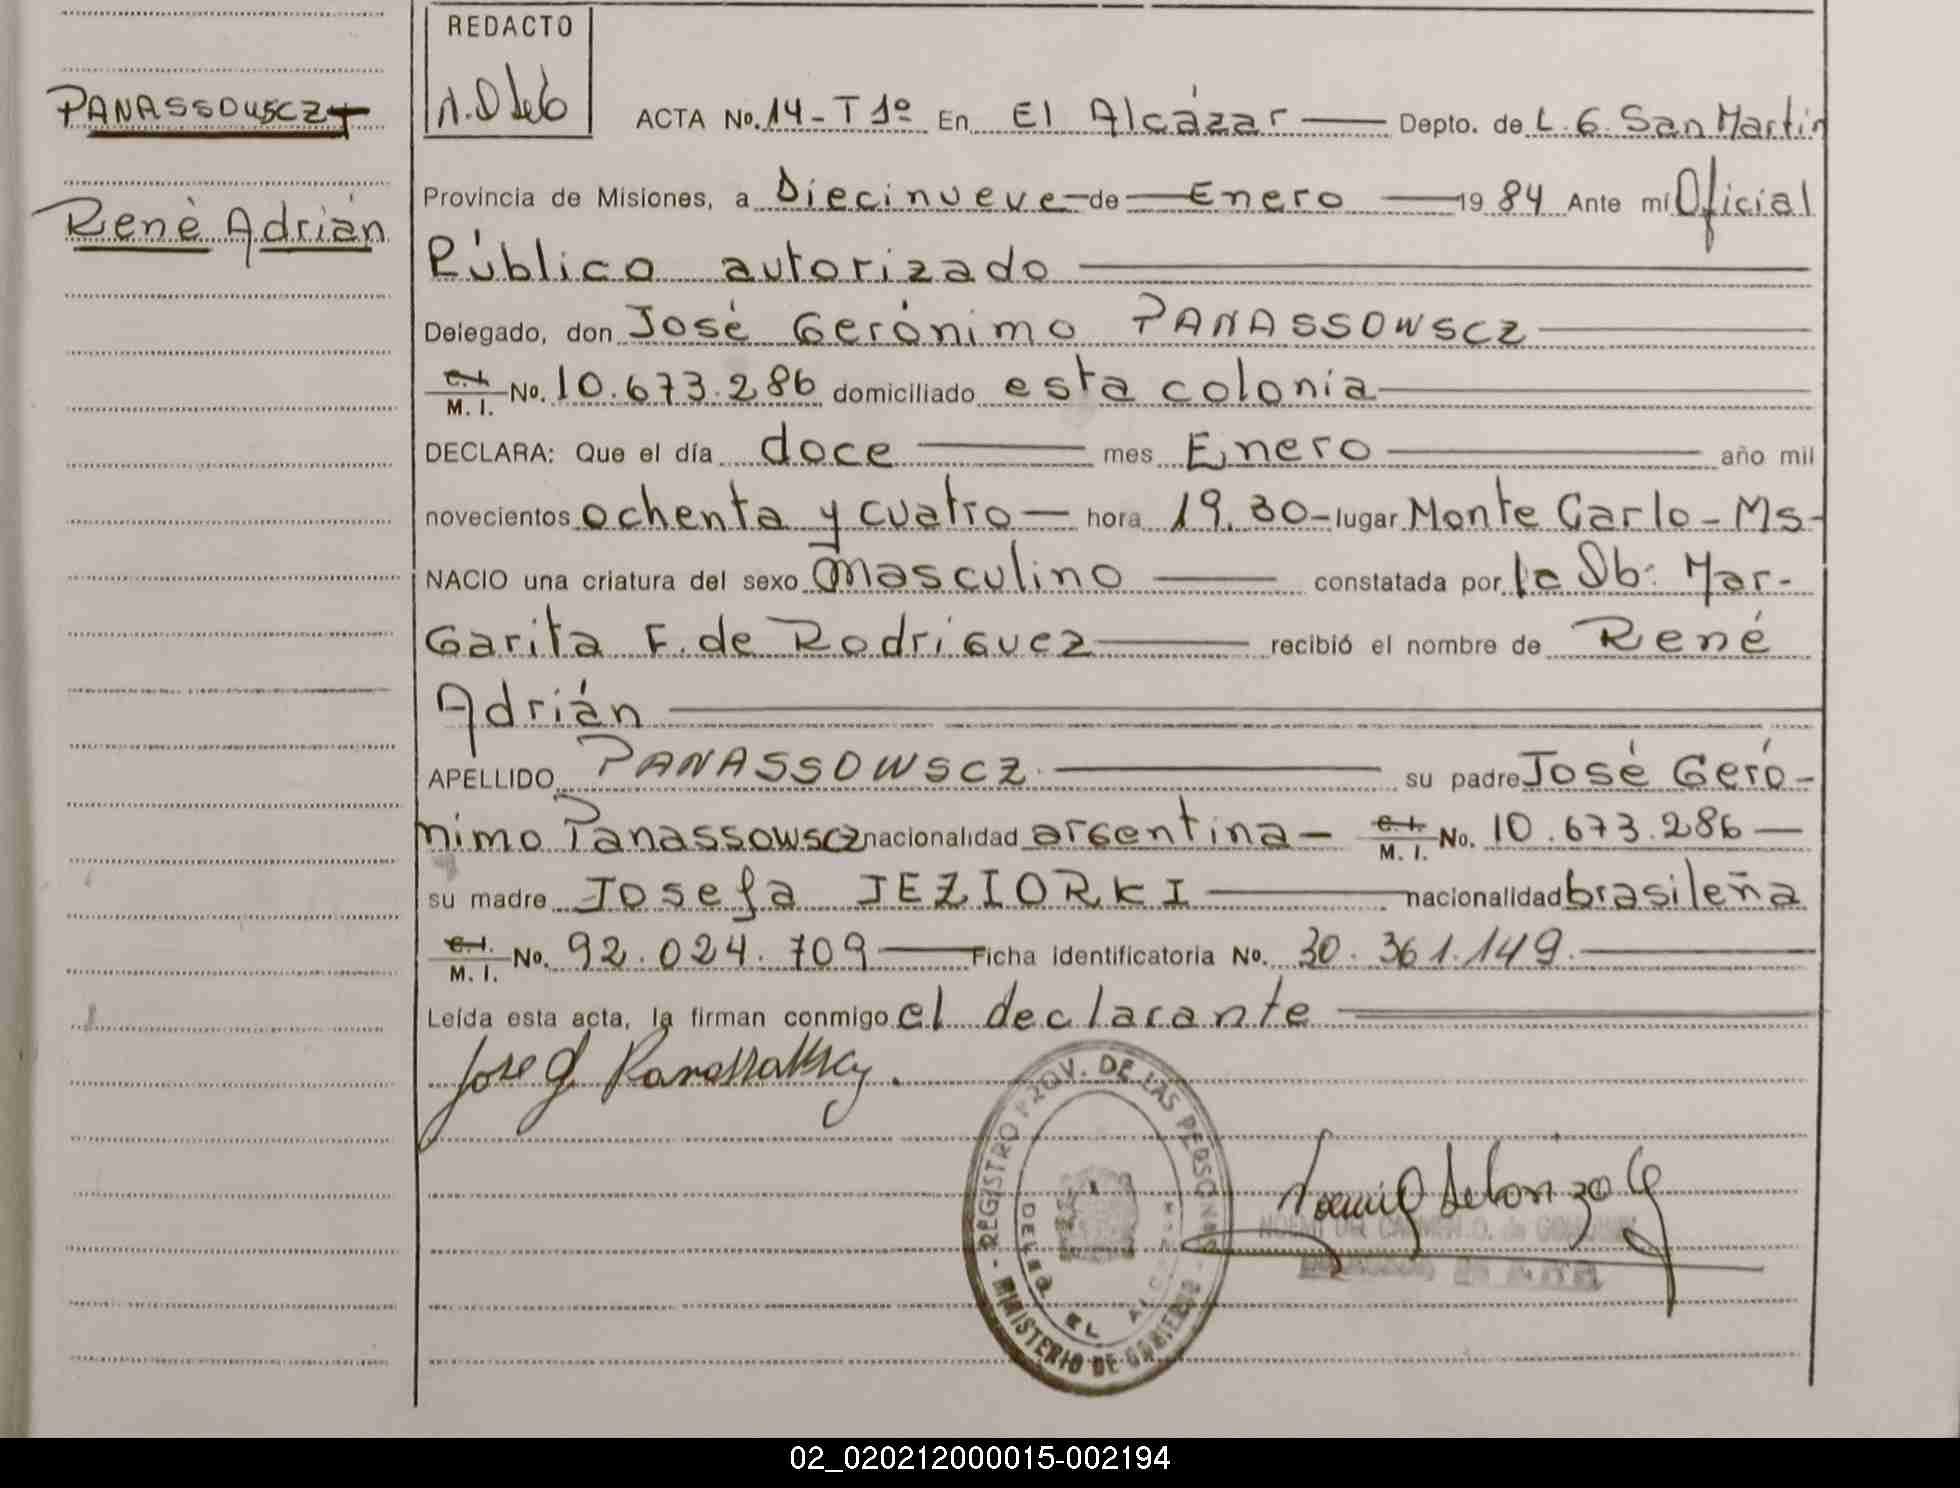 REDACTO
PANASSOWSCZ
René Adrián
ACTA No. 14-T 1º En El Alcázar Depto. de L. G. San Martín
Provincia de Misiones, a Diecinueve de Enero 1984 Ante mí Oficial
Público autorizado
Delegado, don José Gerónimo PANASSOWSCZ
C. I. M. I. No. 10.673.286 domiciliado esta colonia
DECLARA: Que el día doce mes Enero año mil
novecientos ochenta y cuatro hora 19.30 - lugar Monte Carlo - Ms -
NACIO una criatura del sexo masculino constatada por la Ob: Mar-
garita F. de Rodriguez recibió el nombre de René
Adrián
APELLIDO PANASSOWSCZ su padre José Geró-
nimo Panassowscz nacionalidad argentina - C. I. M. I. No. 10.673.286
su madre Josefa JEZIORKI nacionalidad brasileña
C. I. M. I. No. 92.024.709 Ficha identificatoria No. 30.361.149.
Leída esta acta, la firman conmigo el declarante
REGISTRO PROV. DE LAS PERSONAS - MINISTERIO DE GOBIERNO
02_020212000015-002194